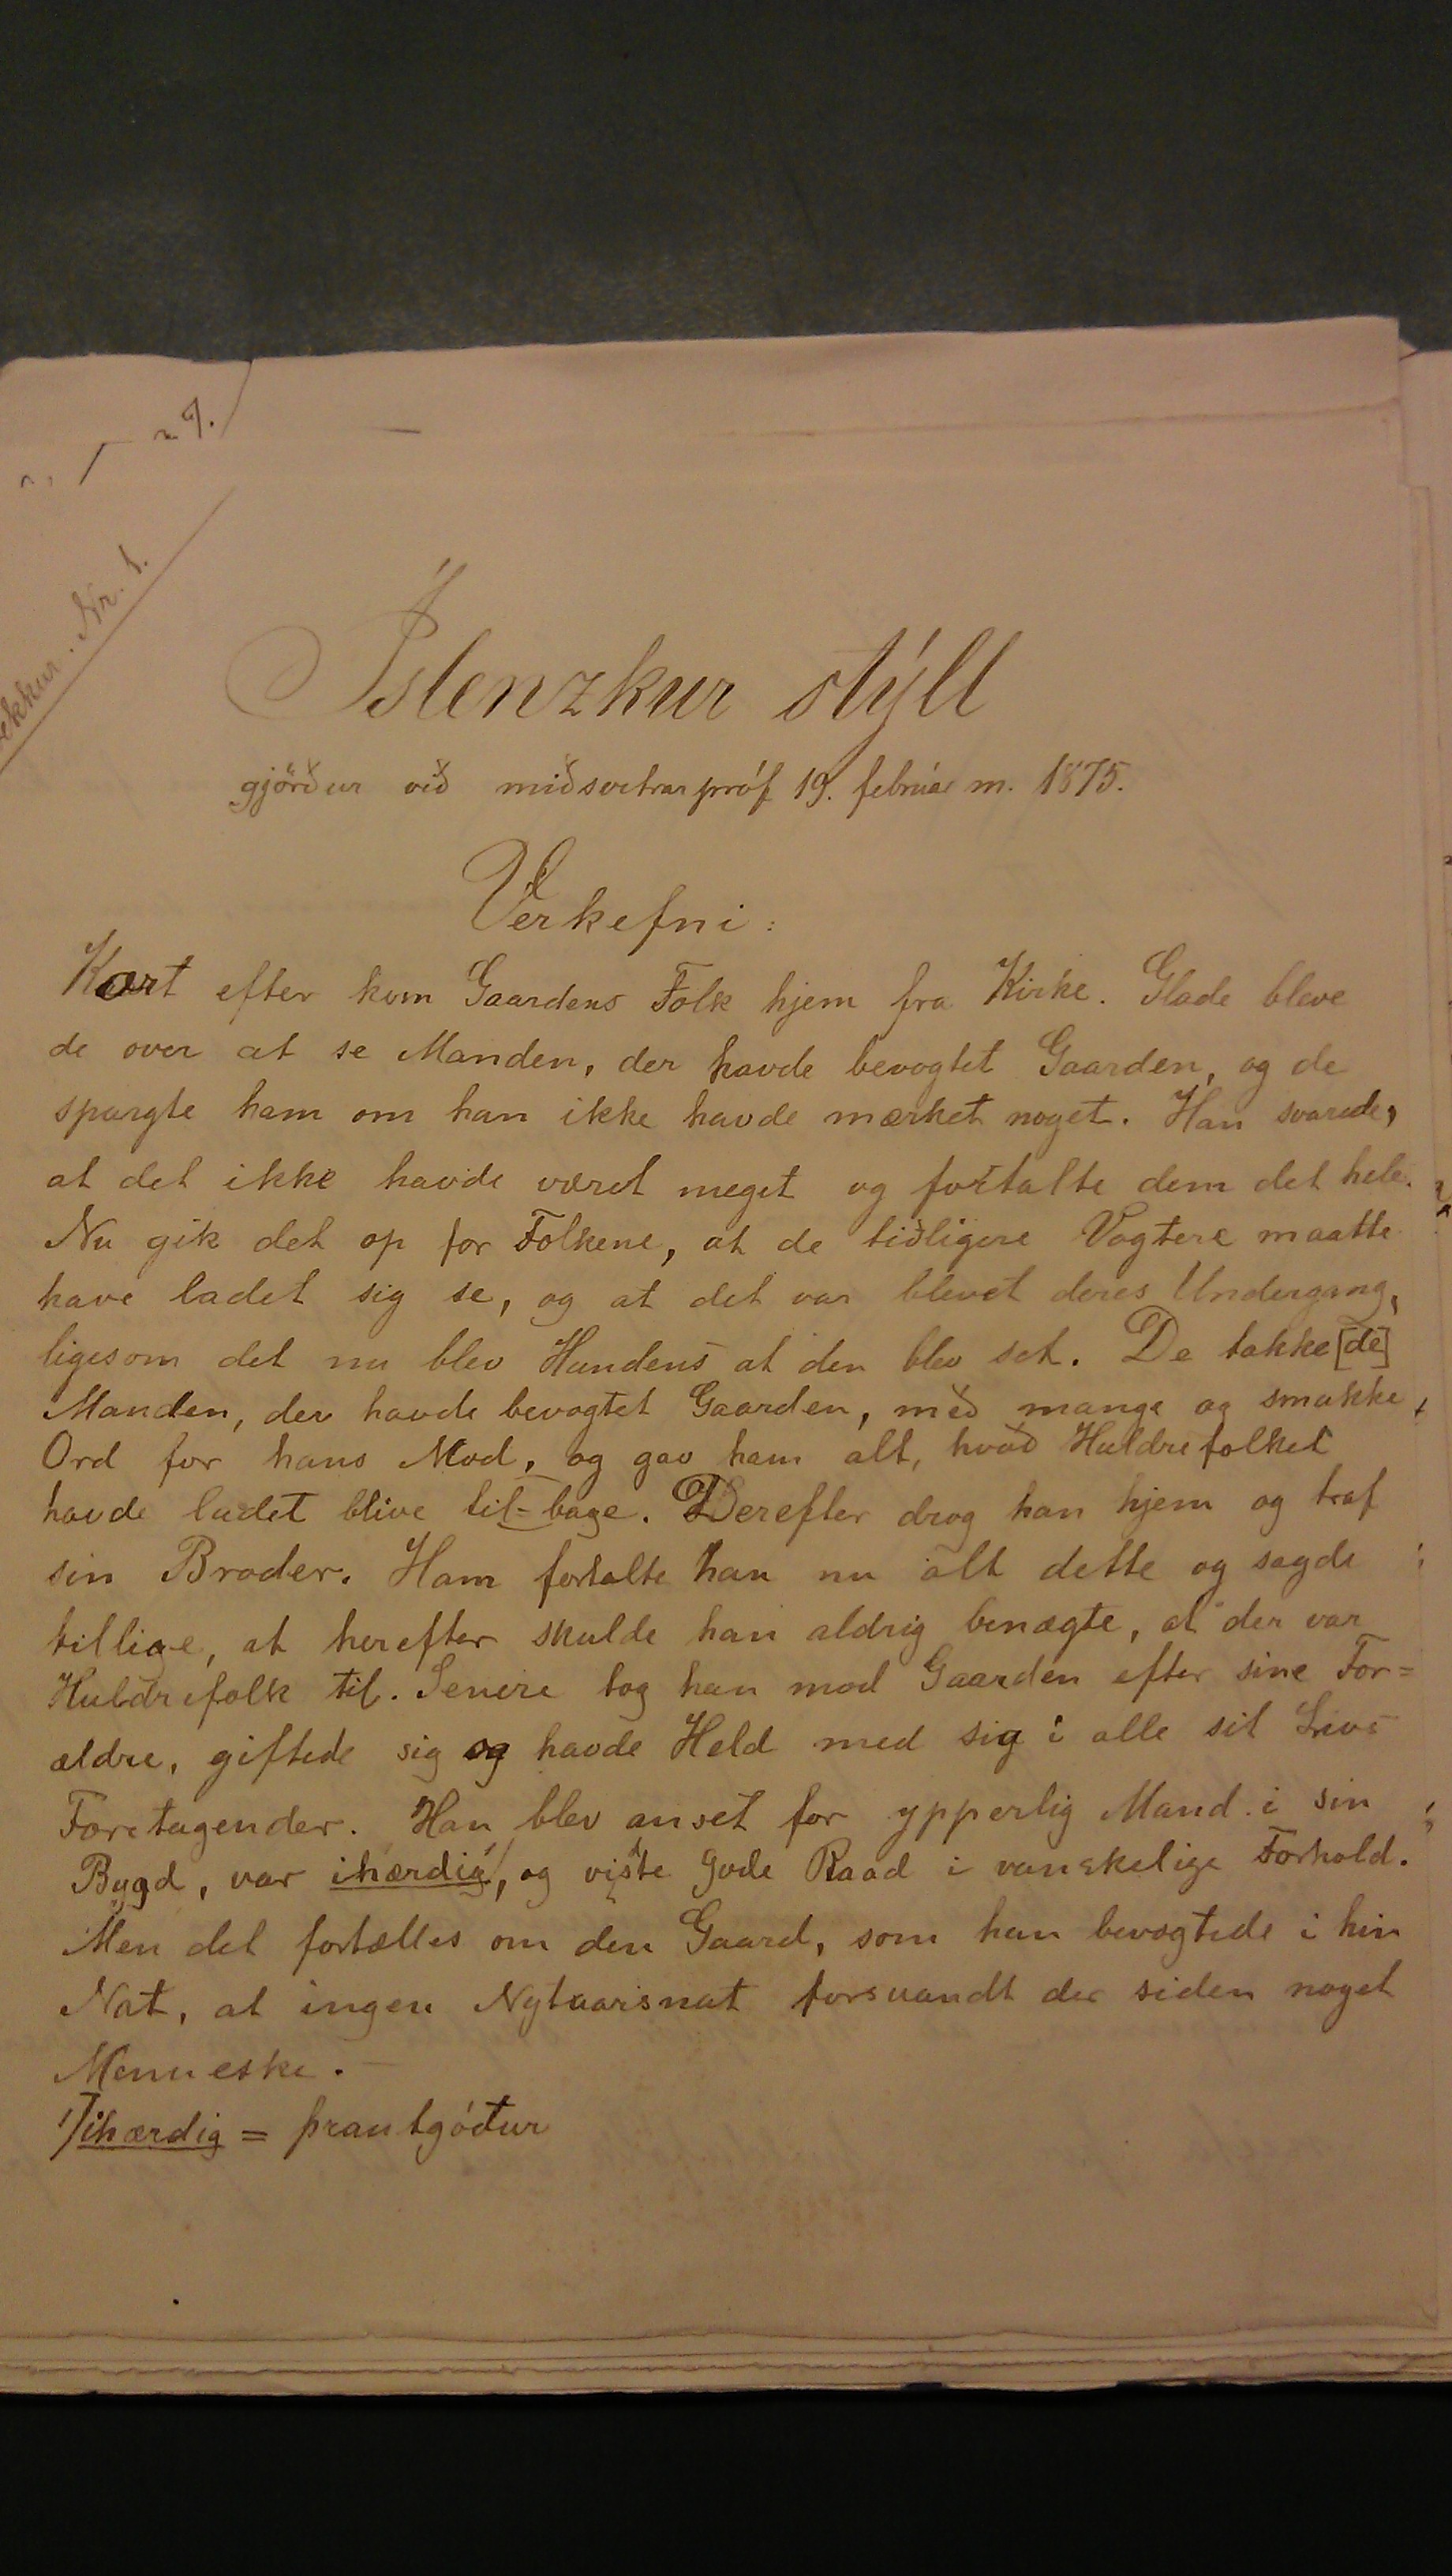 ekkur. Nr. 1.
Íslenzkur stýll
gjörður við miðsvetrarpróf 19. febrúar m. 1875.
Verkefni:
Kort efter kom Gaardens Folk hjem fra Kirke. Glade bleve
de over at se Manden, der havde bevogtet Gaarden, og de
spurgte ham om han ikke havde mærket noget. Han svarede,
at det ikke havde været meget og fortalte dem det hele.
Nu gik det op for Folkene, at de tiðligere Vogtere maatte
have ladet sig se, og at det var blevet deres Undergang,
ligesom det nu blev Hundens at den blev set. De takke[de]
Manden, der havde bevogtet Gaarden, með mange og smukke
Ord for hans Mod, og gav ham alt, hvað Huldrefolket
havde ladet blive til=bage. Derefter drog han hjem og traf
sin Broder. Ham fortalte han nu alt dette og sagde
tillige, at herefter skulde han aldrig benægte, at der var
Huldrefolk til. Senere tog han mod Gaarden efter sine For=
ældre, giftede sig og havde Held med sig i alle sit Livs
Foretagender. Han blev anset for ypperlig Mand i sin
Bygd, var ihærdig 1/, og viste gode Raad i vanskelige Forhold.
Men det fortælles om den Gaard, som han bevogtede i hin
Nat, at ingen Nytaarsnat forsvandt der siden noget
Menneske.
1/ ihærdig = þrautgóður